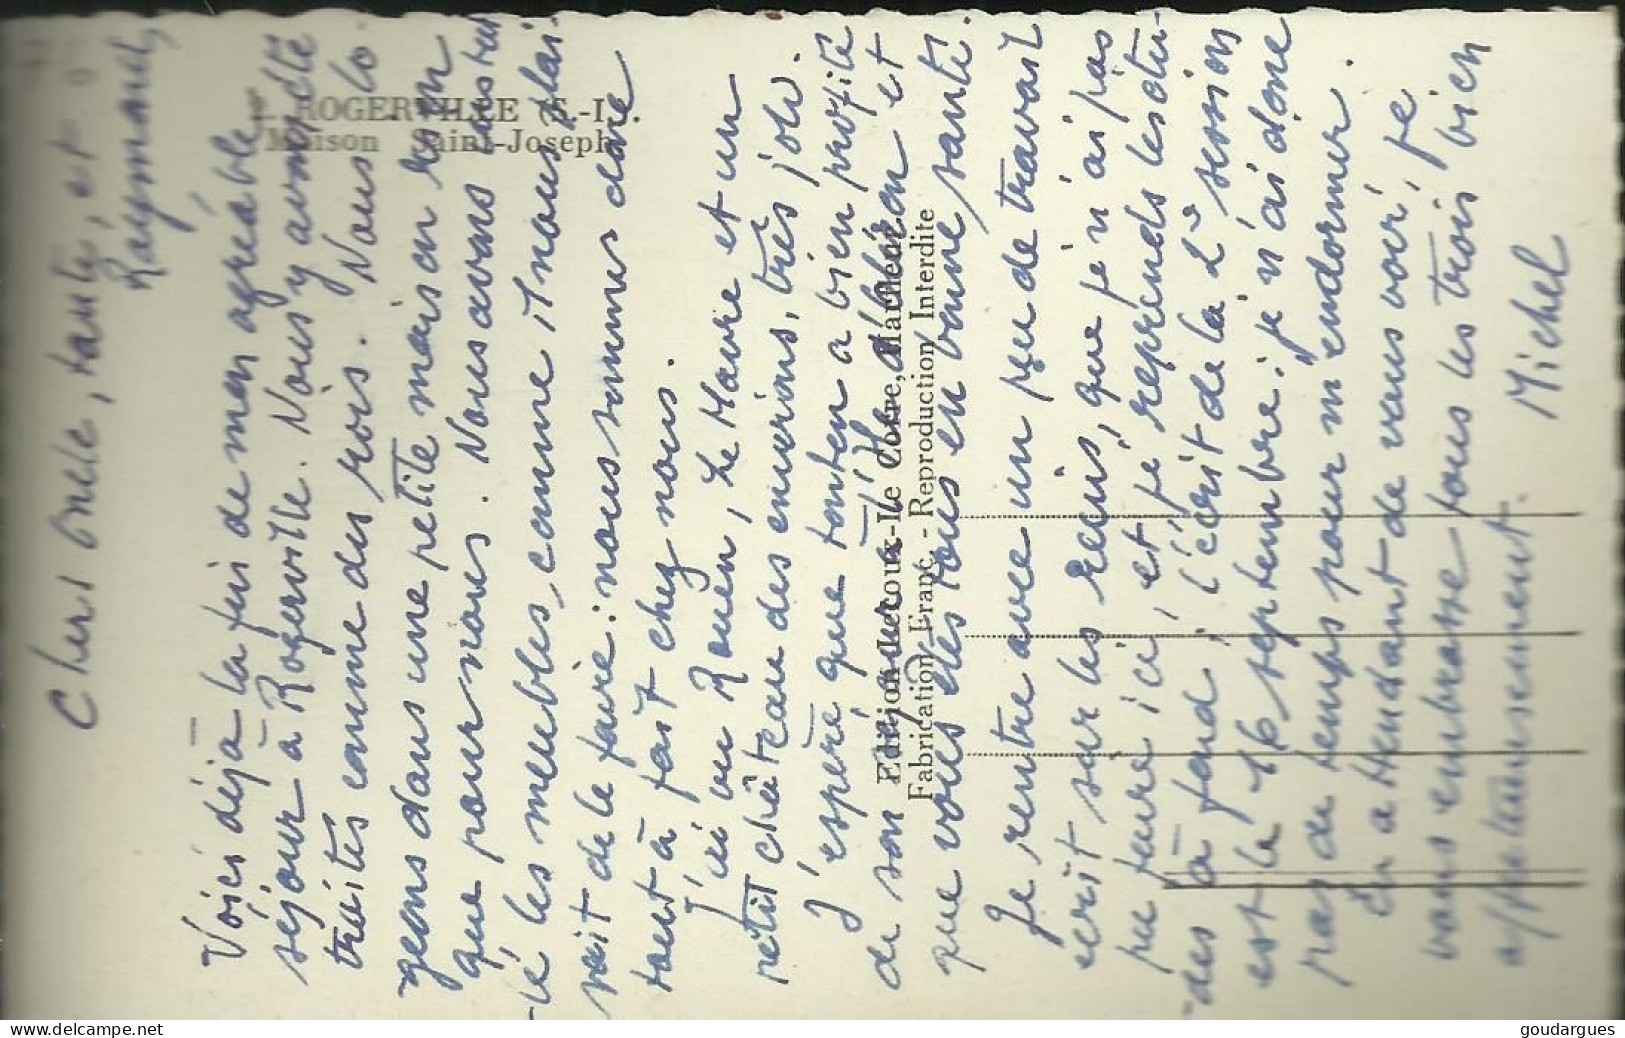 Chers Oncle, tante, et
Raymond,
Voici déjà la fin de mon agréable
séjour à Rogerville. Nous y avons été
traités comme des rois. Nous lo-
geons dans une petite maison rien
que pour nous. Nous avons install
-lé les meubles, comme il nous plai-
sait de le faire : nous sommes donc
tout à fait chez nous.
J'ai vu Rouen, Le Havre et un
petit château des environs, très joli.
J'espère que tonton a bien profité
de son séjour à et
que vous êtes tous en bonne santé.
Je rentre avec un peu de travail
écrit sur les reins, que je n'ai pas
pu faire ici, et je reprends les étu-
-des à fond ; l'écrit de la 2e session
est le 16 septembre ; je n'ai donc
pas de temps pour m'endormir.
En attendant de vous voir, je
vous embrasse tous les trois bien
affectueusement.
Michel
- ROGERVILLE S.-I.
Maison Saint-Joseph
Edition Lecoux-Le Corre, Marchand
Fabrication Franç. - Reproduction Interdite
© delcampe.net
goudargues